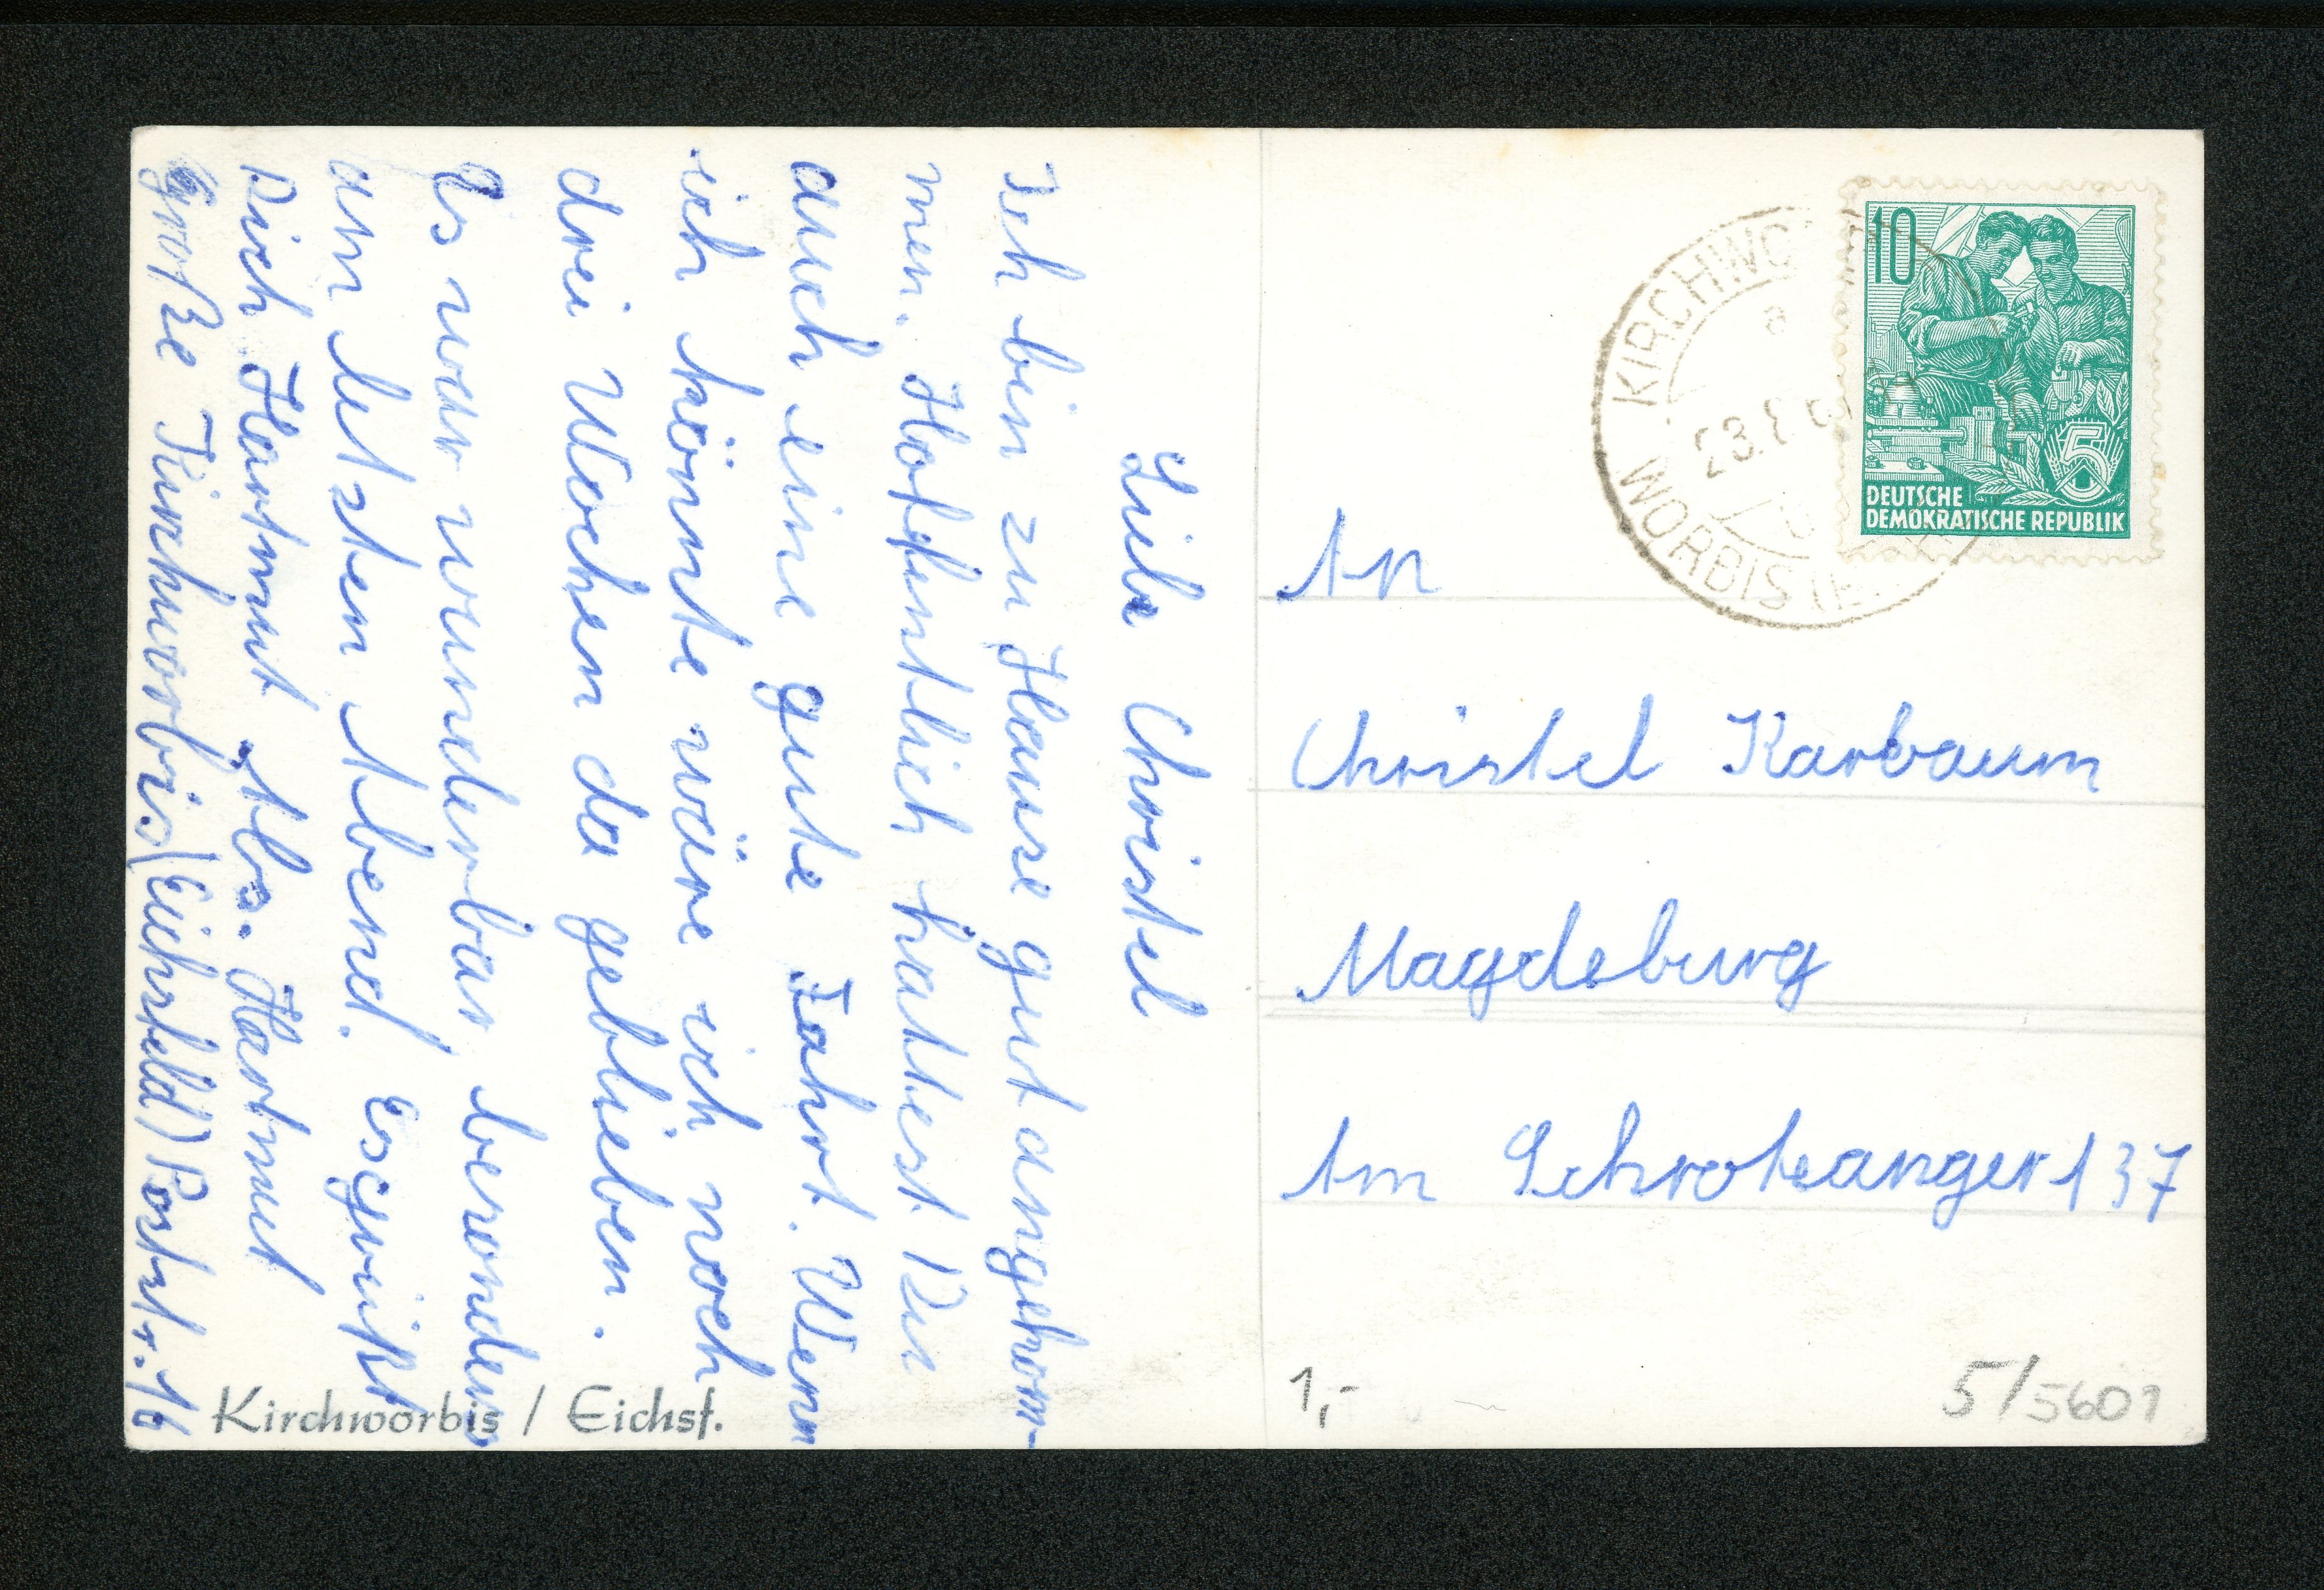 Liebe Christel
Ich bin zu Hause gut angekom-
men. Hofdentlich hattest Du
auch eine gute Fahrt. Wenn
ich könnte wäre ich noch
drei Wochen da geblieben.
Es war wunderbar besonders
am letsten Abend. Es grüßt
Dich Hartmut Abs. Hartmut
Große Kirchworbis (Eichsfeld) Postr. 16
Kirchworbis / Eichsf.
KIRCHWO
WORBIS (E
a
23.
10
5
DEUTSCHE
DEMOKRATISCHE REPUBLIK
An
Christel Karbaum
Magdeburg
Am Schroteanger 137
1,-
5/5601